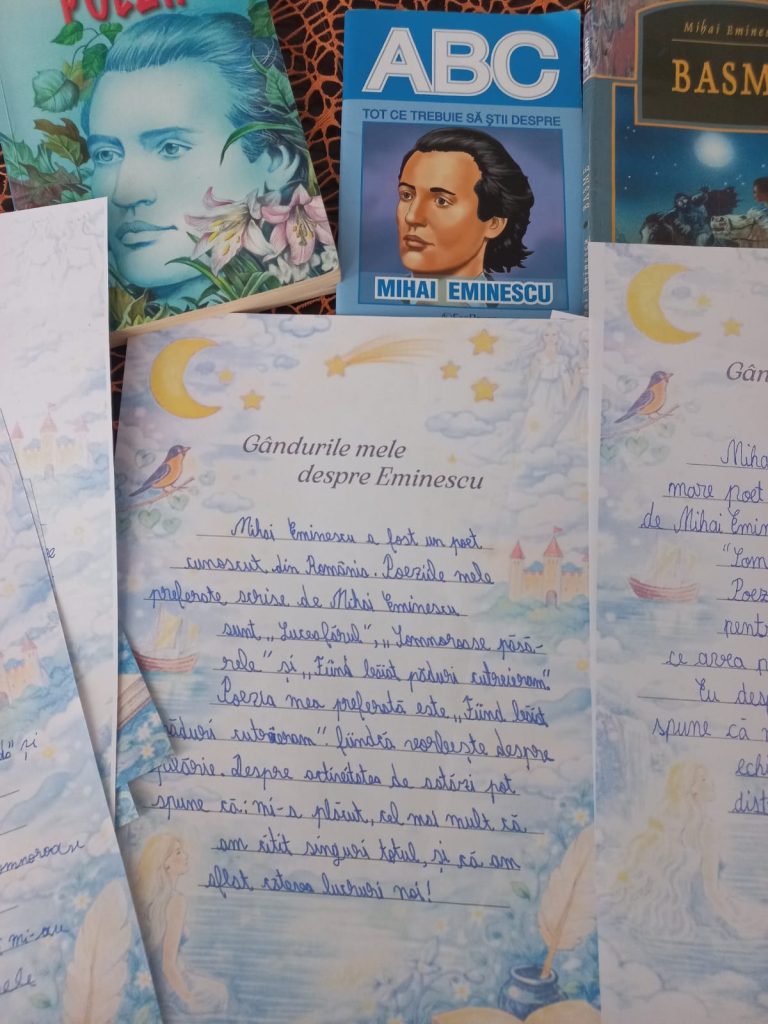 ABC
TOT CE TREBUIE SĂ ȘTII DESPRE
MIHAI EMINESCU
Mihai Emines
BASM
BASME
Gândurile mele
despre Eminescu
Mihai Eminescu a fost un poet
cunoscut din România. Poeziile mele
preferate scrise de Mihai Eminescu
sunt „Luceafărul”, „Somnoroase păsă-
rele” și „Fiind băiat păduri cutreieram”.
Poezia mea preferată este „Fiind băiat
păduri cutreieram” fiindcă vorbește despre
pilărie. Despre activitatea de astăzi pot
spune că: mi-a plăcut, cel mai mult că
am citit singuri totul, și că am
aflat câteva lucruri noi!
Gân
Miha
mare poet
de Mihai Emin
"Som
Poez
pentr
ce avea p
Eu desp
spune că m
echi
dist
și
omnoroase
mi-au
ele